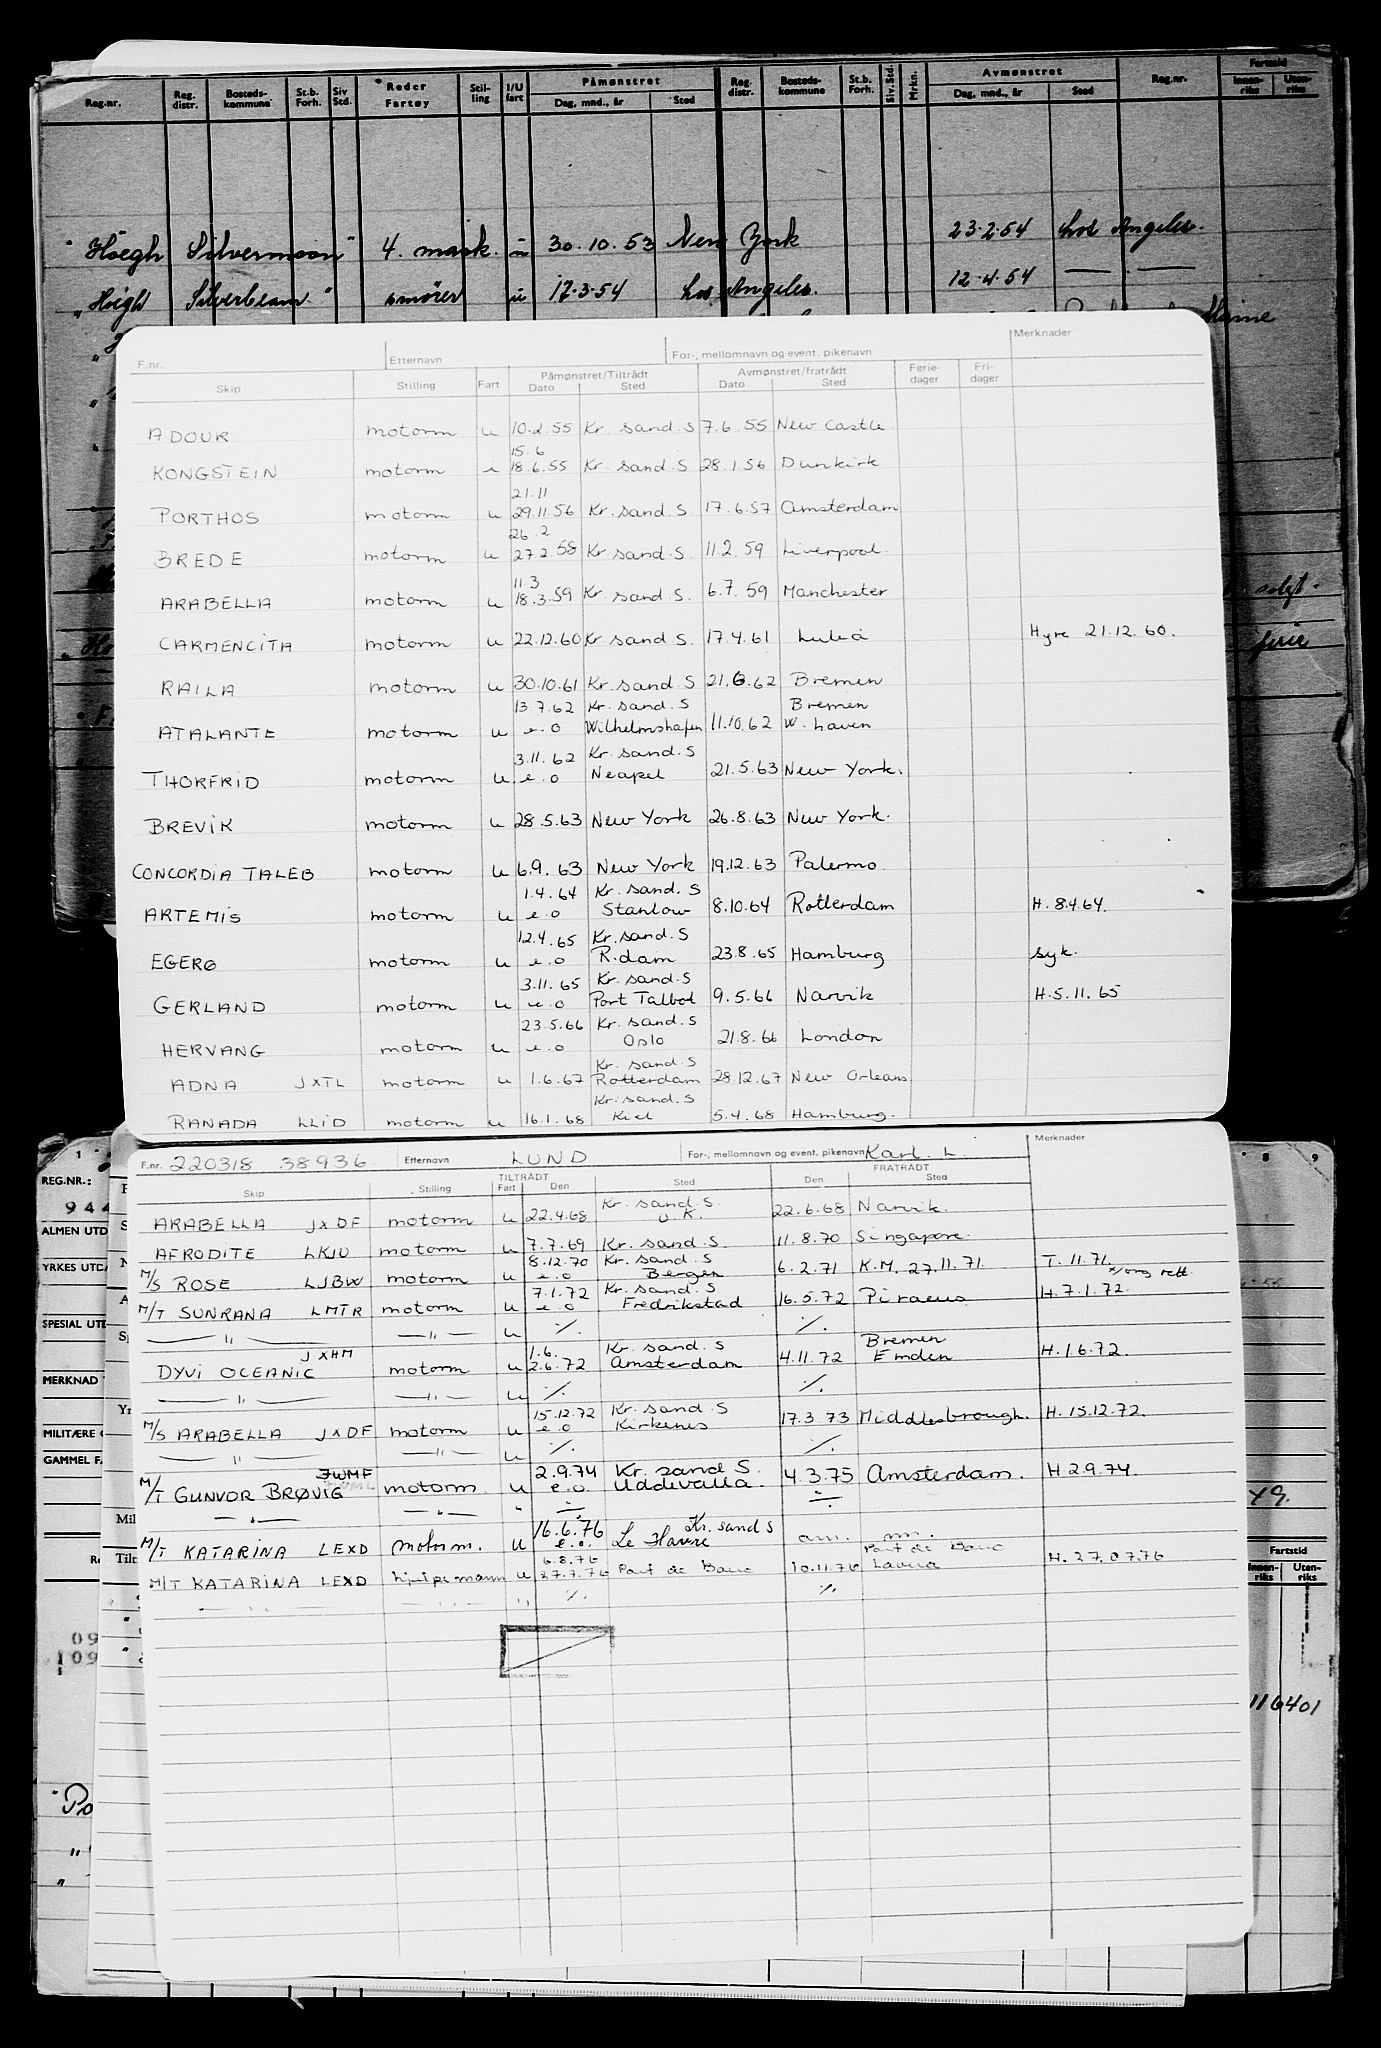 Reg.nr. Reg. distr. Bosteds- kommune St.b. Forh. Siv Std. Reder Fartøy Stil- ling I/U fart Påmønstret Dag, mnd., år Sted Reg. distr. Bosteds- kommune St.b. Forh. Siv. Std. Mrkn. Avmønstret Dag, mnd., år Sted Reg.nr. Fartstid Innen- riks Uten- riks
"Höegh Silvermoon" 4. mask. u 30.10.53 New York 23.2.54 Los Angeles.
"Höigh Silverbeam" smörer u 17.3.54 Los Angeles. 12.4.54 — . —
F.nr. Etternavn For-, mellomnavn og event. pikenavn Merknader
Skip Stilling Fart Påmønstret/Tiltrådt Dato Sted Avmønstret/fratrådt Dato Sted Ferie- dager Fri- dager
ADOUR motorm u 10.2.55 Kr. sand. S 7.6.55 New Castle
15.6
KONGSTEIN motorm i 18.6.55 Kr. sand. S 28.1.56 Dunkirk
21.11
PORTHOS motorm u 29.11.56 Kr. sand. S 17.6.57 Amsterdam
26.2
BREDE motorm u 27.2.58 Kr. sand. S. 11.2.59 Liverpool.
11.3
ARABELLA motorm u 18.3.59 Kr. sand S. 6.7.59 Manchester
CARMENCITA motorm u 22.12.60 Kr. sand S. 17.4.61 Luleå Hyre 21.12.60.
RAILA motorm u 30.10.61 Kr. sand. S 21.6.62 Bremen
13.7.62 Kr. sand. S Bremen
ATALANTE motorm u e.o Wilhelmshafen 11.10.62 W. haven
3.11.62 Kr. sand. S
THORFRID motorm u e.o Neapel 21.5.63 New York.
BREVIK motorm u 28.5.63 New York 26.8.63 New York.
CONCORDIA TALEB motorm u 6.9.63 New York 19.12.63 Palermo
1.4.64 Kr. sand. S
ARTEMIS motorm u e.o Stanlow 8.10.64 Rotterdam H. 8.4.64.
12.4.65 Kr. sand. S
EGERØ motorm u e.o R.dam 23.8.65 Hamburg syk.
3.11.65 Kr. sand. S
GERLAND motorm u e.o Port Talbot 9.5.66 Narvik H. 5.11.65
23.5.66 Kr. sand. S
HERVANG motorm u e.o Oslo 21.8.66 London
Kr. sand. S
ADNA JXTL motorm u 1.6.67 Rotterdam 28.12.67 New Orleans
Kr. sand. S
RANADA LLID motorm u 16.1.68 Kiel 5.4.68 Hamburg.
F.nr. 220318 38936 Etternavn LUND For-, mellomnavn og event. pikenavn Karl. L. Merknader
Skip Stilling TILTRÅDT Fart Den Sted FRATRÅDT Den Sted
Kr. sand. S.
ARABELLA JXDF motorm u 22.4.68 U.K. 22.6.68 Narvik.
AFRODITE LKJU motorm u 7.7.69 Kr. sand. S. 11.8.70 Singapore.
8.12.70 Kr. sand. S
M/S ROSE LJBW motorm u e.o Bergen 6.2.71 K.M. 27.11.71. T. 11.71.
7.1.72 Kr. sand. S
M/T SUNRANA LMTR motorm u e.o Fredrikstad 16.5.72 Piraeus H. 7.1.72.
— " — — " — u ./. ./.
JXHM 1.6. Kr. sand. S Bremen
DYVI OCEANIC motorm u 2.6.72 Amsterdam 4.11.72 Emden H. 1.6.72.
— " — — " — u ./. ./.
15.12.72 Kr. sand. S
M/S ARABELLA JXDF motorm u e.o Kirkenes 17.3.73 Middlesbrough. H. 15.12.72.
— " — — " — u ./. ./.
JWMF 2.9.74 Kr. sand S.
M/T GUNVOR BRØVIG motorm u e.o. Uddevalla. 4.3.75 Amsterdam. H. 2.9.74.
— " — — " — " ÷ ÷
16.6.76 Kr. sand S
M/T KATARINA LEXD motorm. u e.o. Le Havre
6.8.76
M/T KATARINA LEXD u 27.7.76 10.11.76 Lavera H. 27.07.76
./. ./.
REG.NR.:
944
ALMEN UTD
YRKES UTDA
SPESIAL UTE
MERKNAD
MILITÆRE
GAMMEL F
Fartstid
Innen- riks Uten- riks
116401